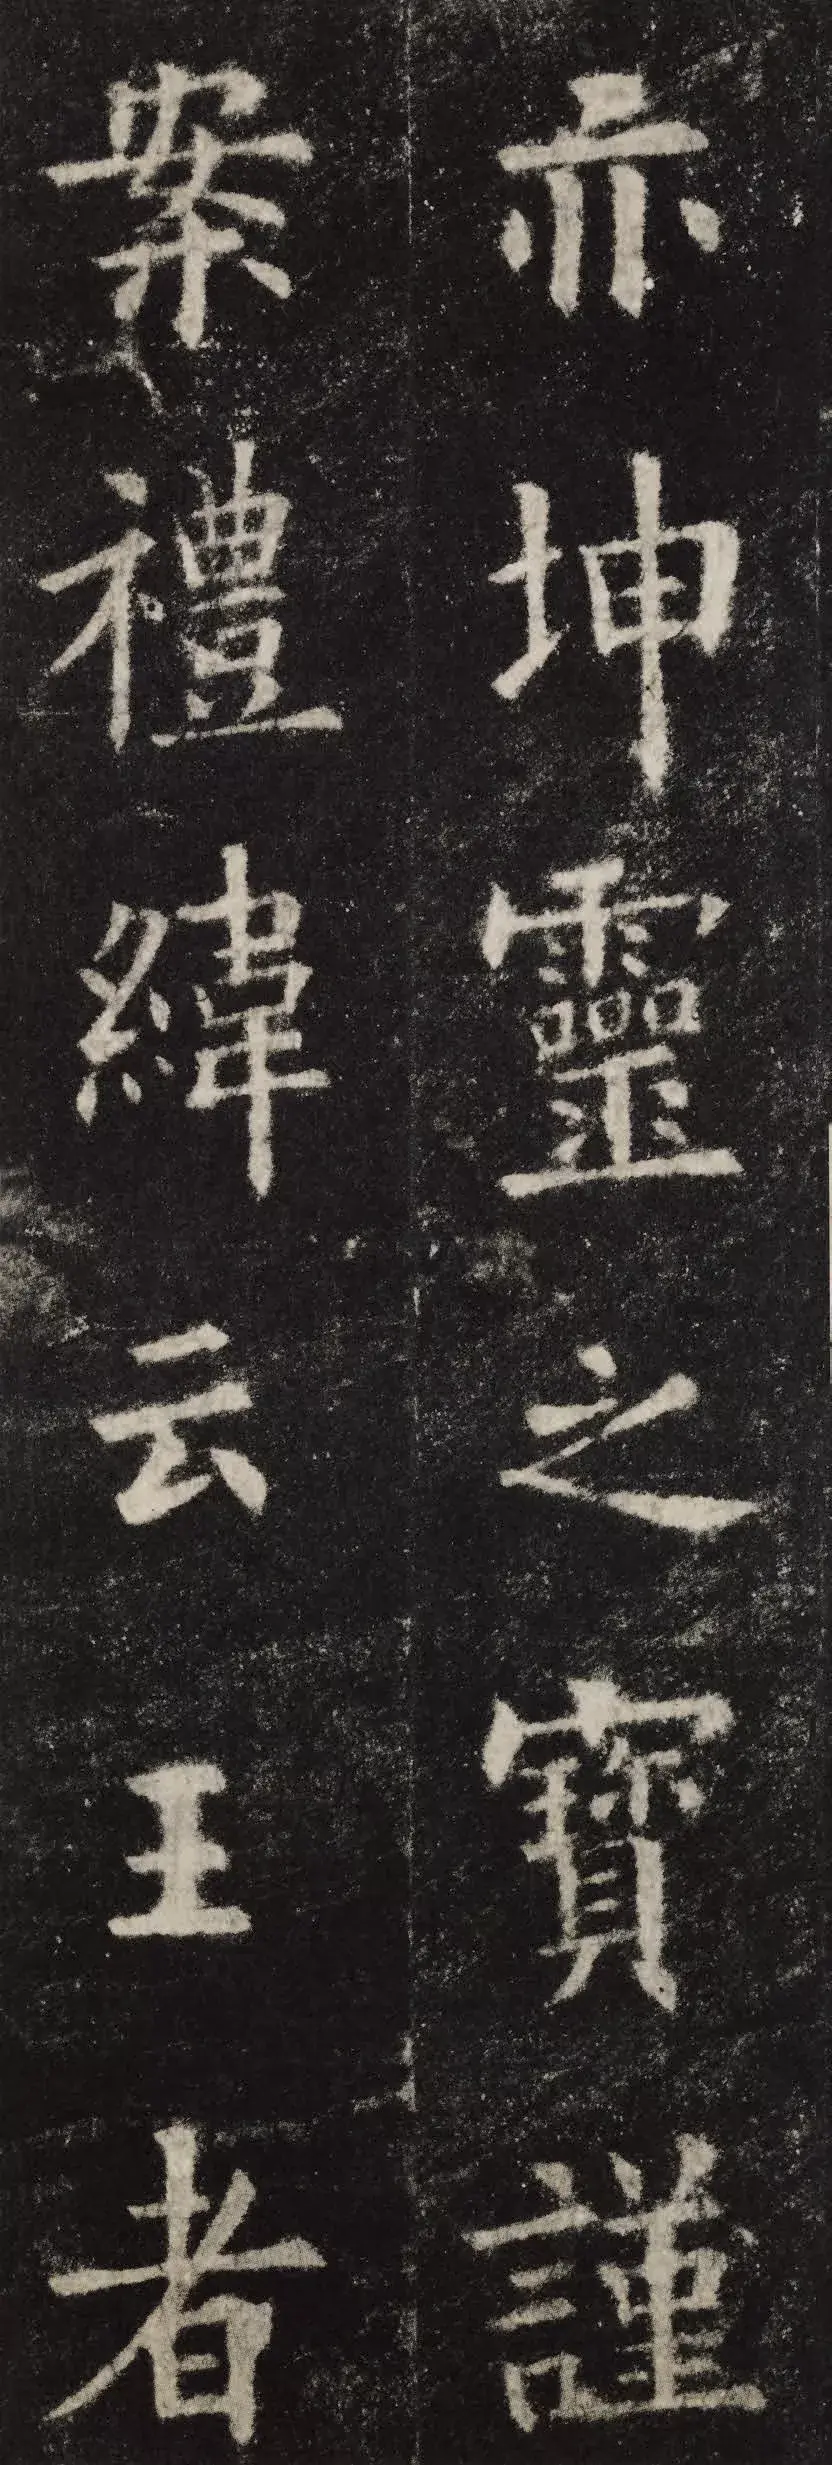 亦坤靈之寶謹
案禮緯云王者